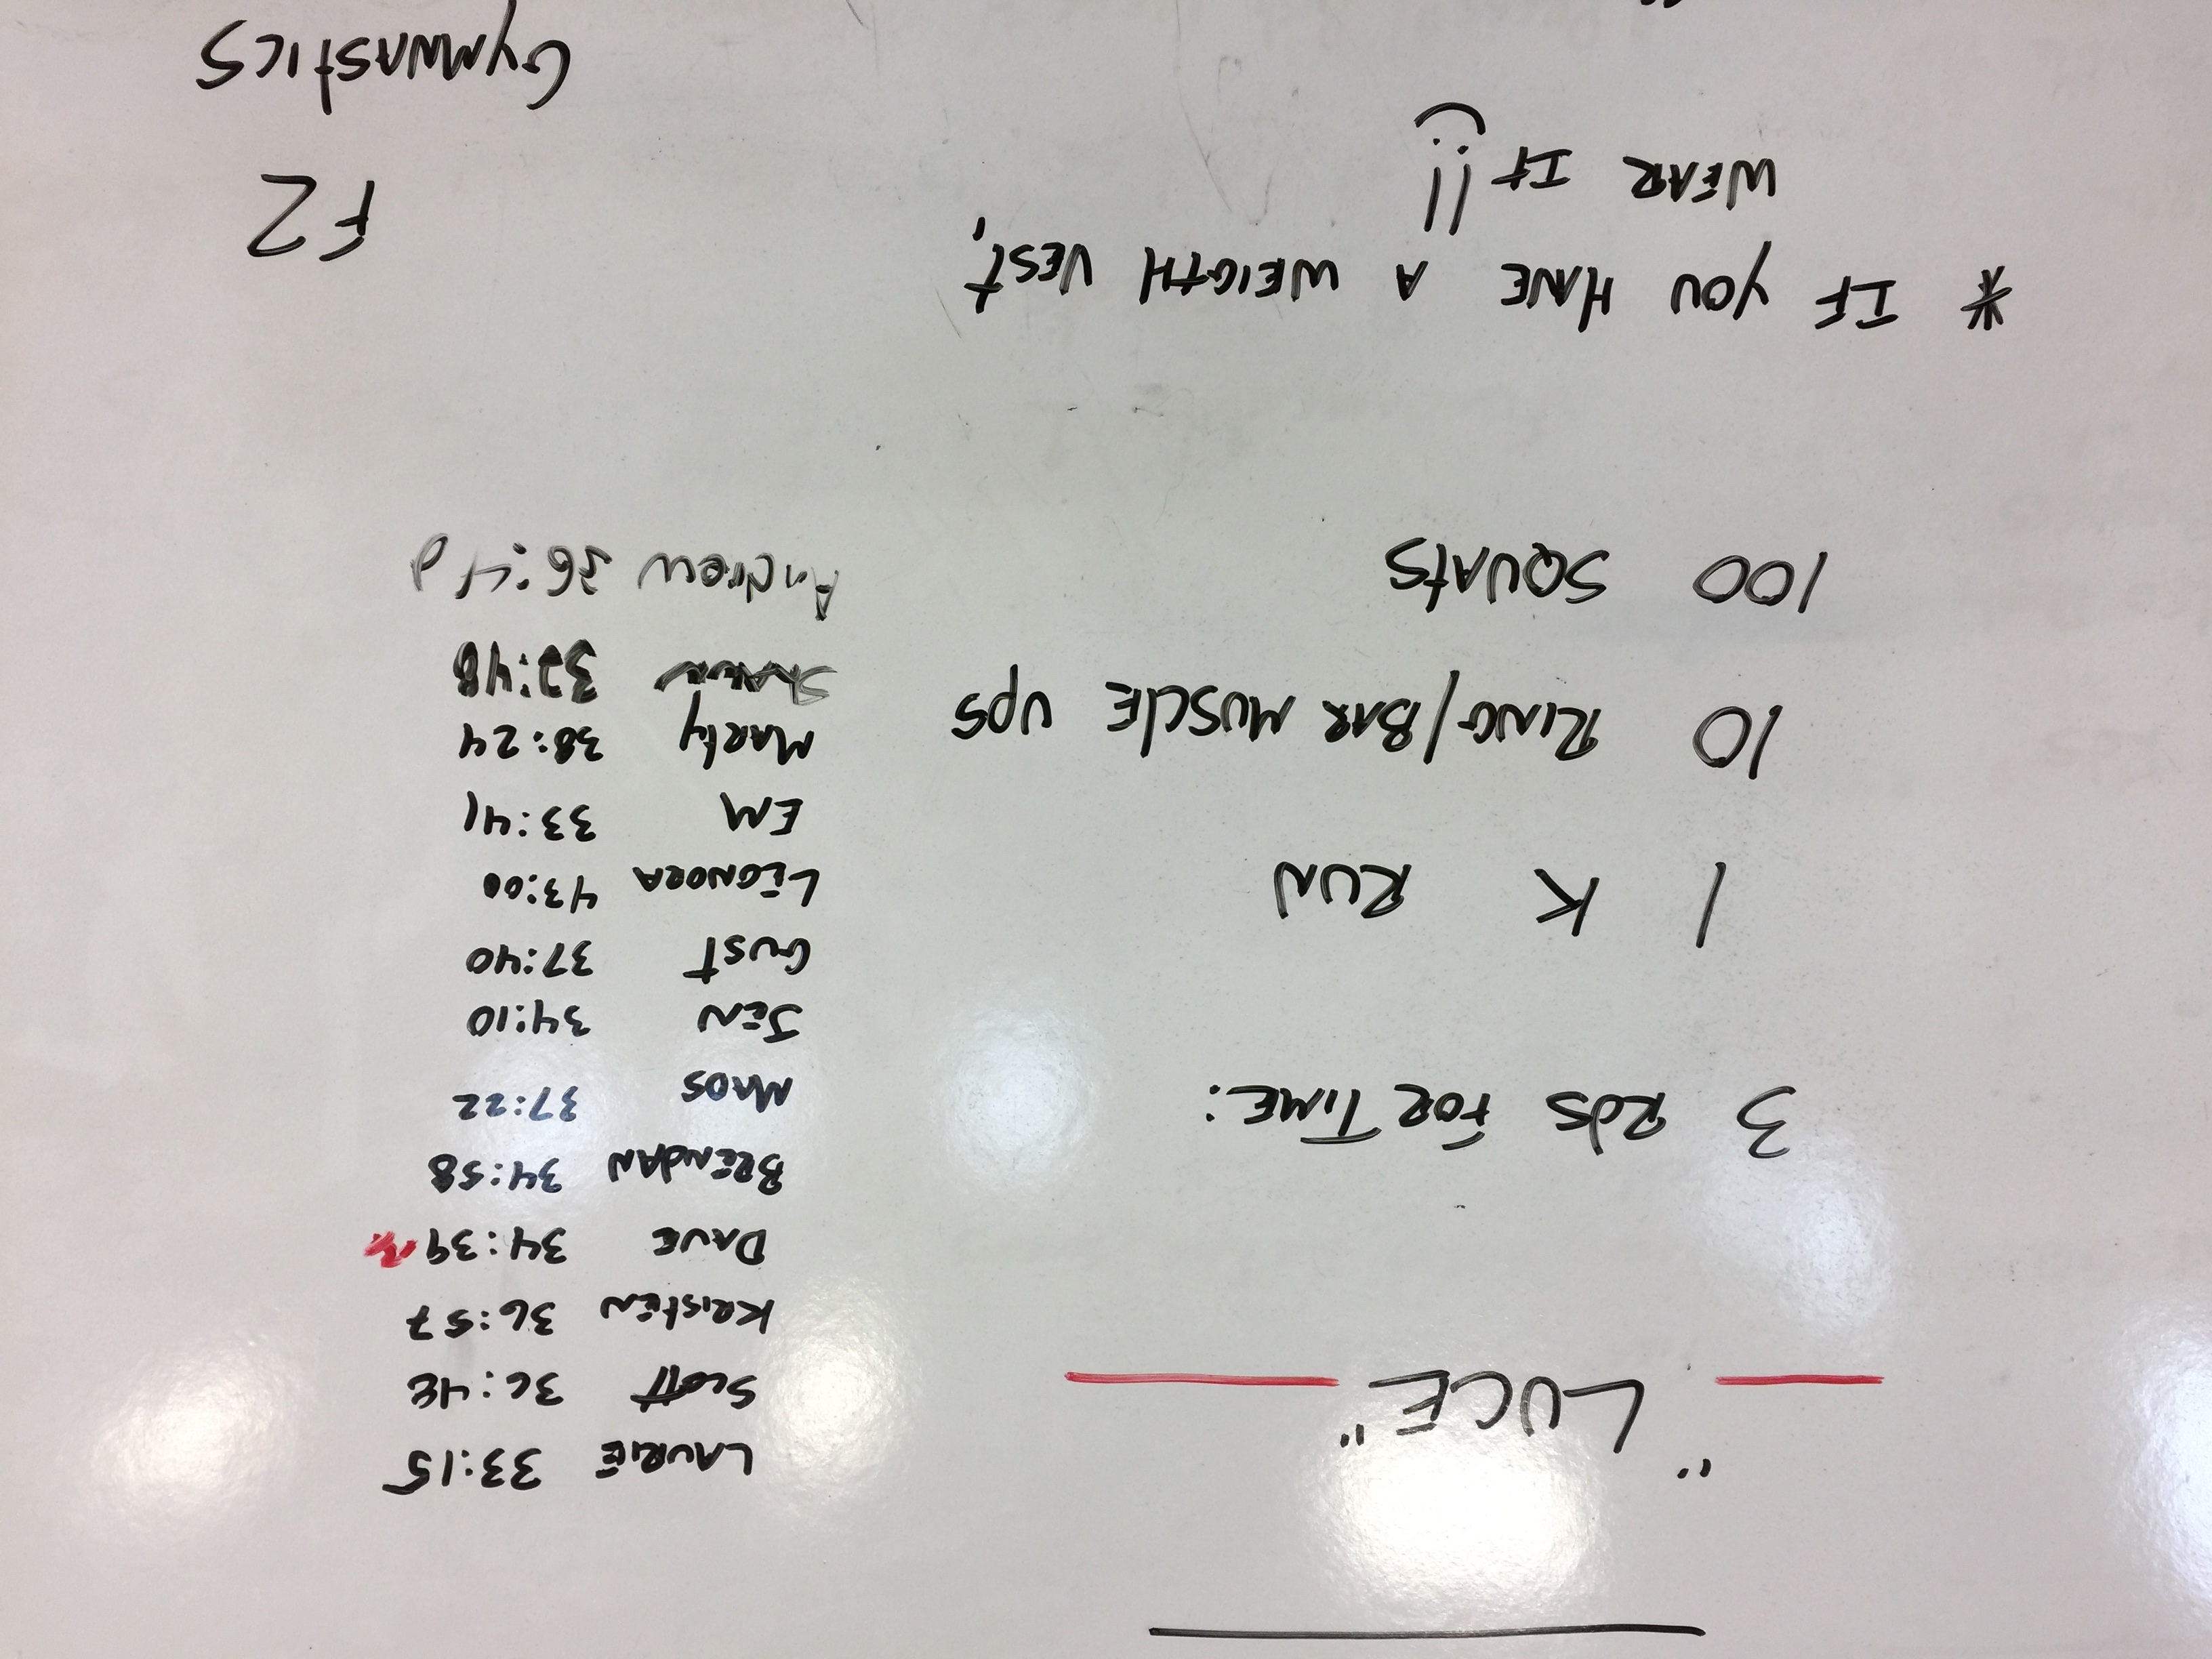 "LUCE"
3 RdS FOR TIME:
1 K RUN
10 RING/BAR MUSCLE UPS
100 SQUATS
* IF YOU HAVE A WEIGTH VEST,
WEAR IT!!
LAURIE 33:15
SCOTT 36:48
KRISTEN 36:57
DAVE 34:39
BRENDAN 34:58
MADS 37:22
JEN 34:10
GUST 37:40
LEONORA 43:00
EM 33:41
MARTY 38:24
SHAWN
Andrew
F2
GYMNASTICS